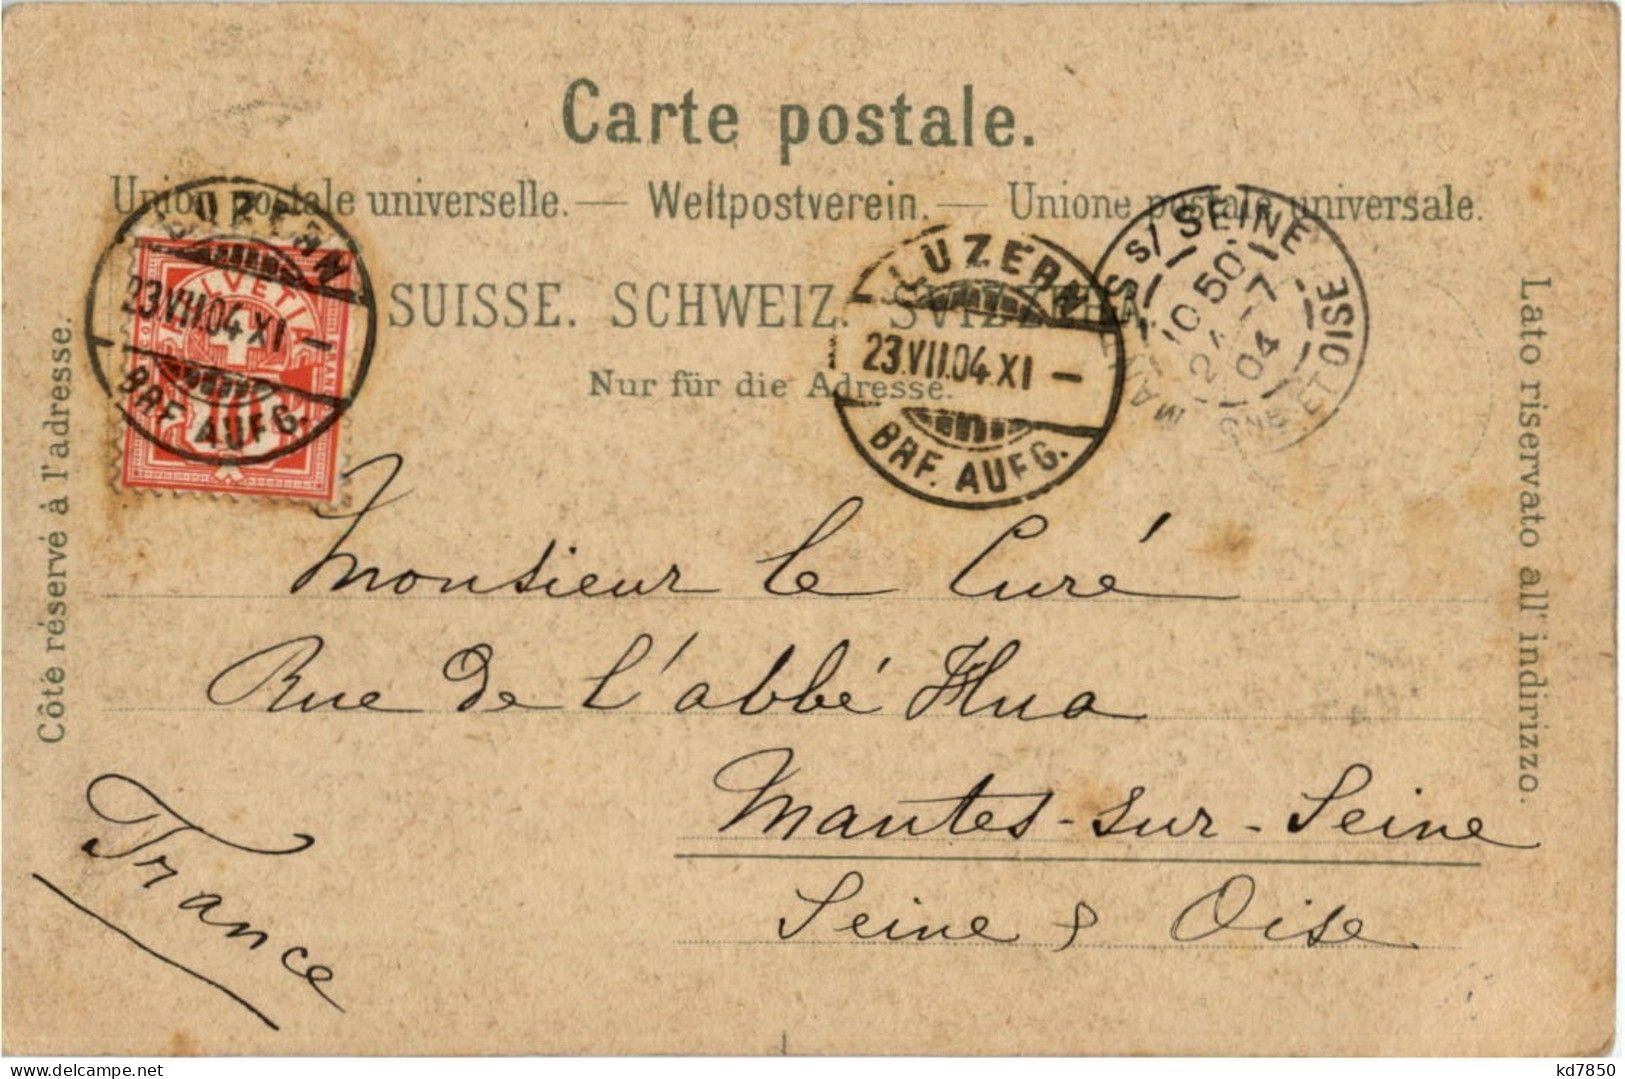 Carte postale.
Union postale universelle. — Weltpostverein. — Unione postale universale.
SUISSE. SCHWEIZ. SVIZZERA.
Nur für die Adresse.
Côté réservé à l'adresse.
Lato riservato all' indirizzo.
HELVETIA
10
LUZERN
23.VII.04.XI –
BRF. AUFG.
LUZERN
23.VII.04.XI –
BRF. AUFG.
S/ SEINE
10 50
24 7
04
ET OISE
Monsieur le Curé
Rue de l'abbé Hua
Mantes-sur-Seine
Seine & Oise
France
delcampe.net
kd7850